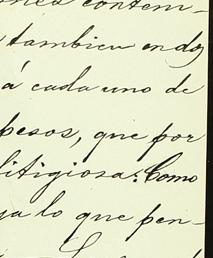 contem-
tambien en dos
á cada uno de
pesos, que por
litigiosa: Como
ya lo que pen-